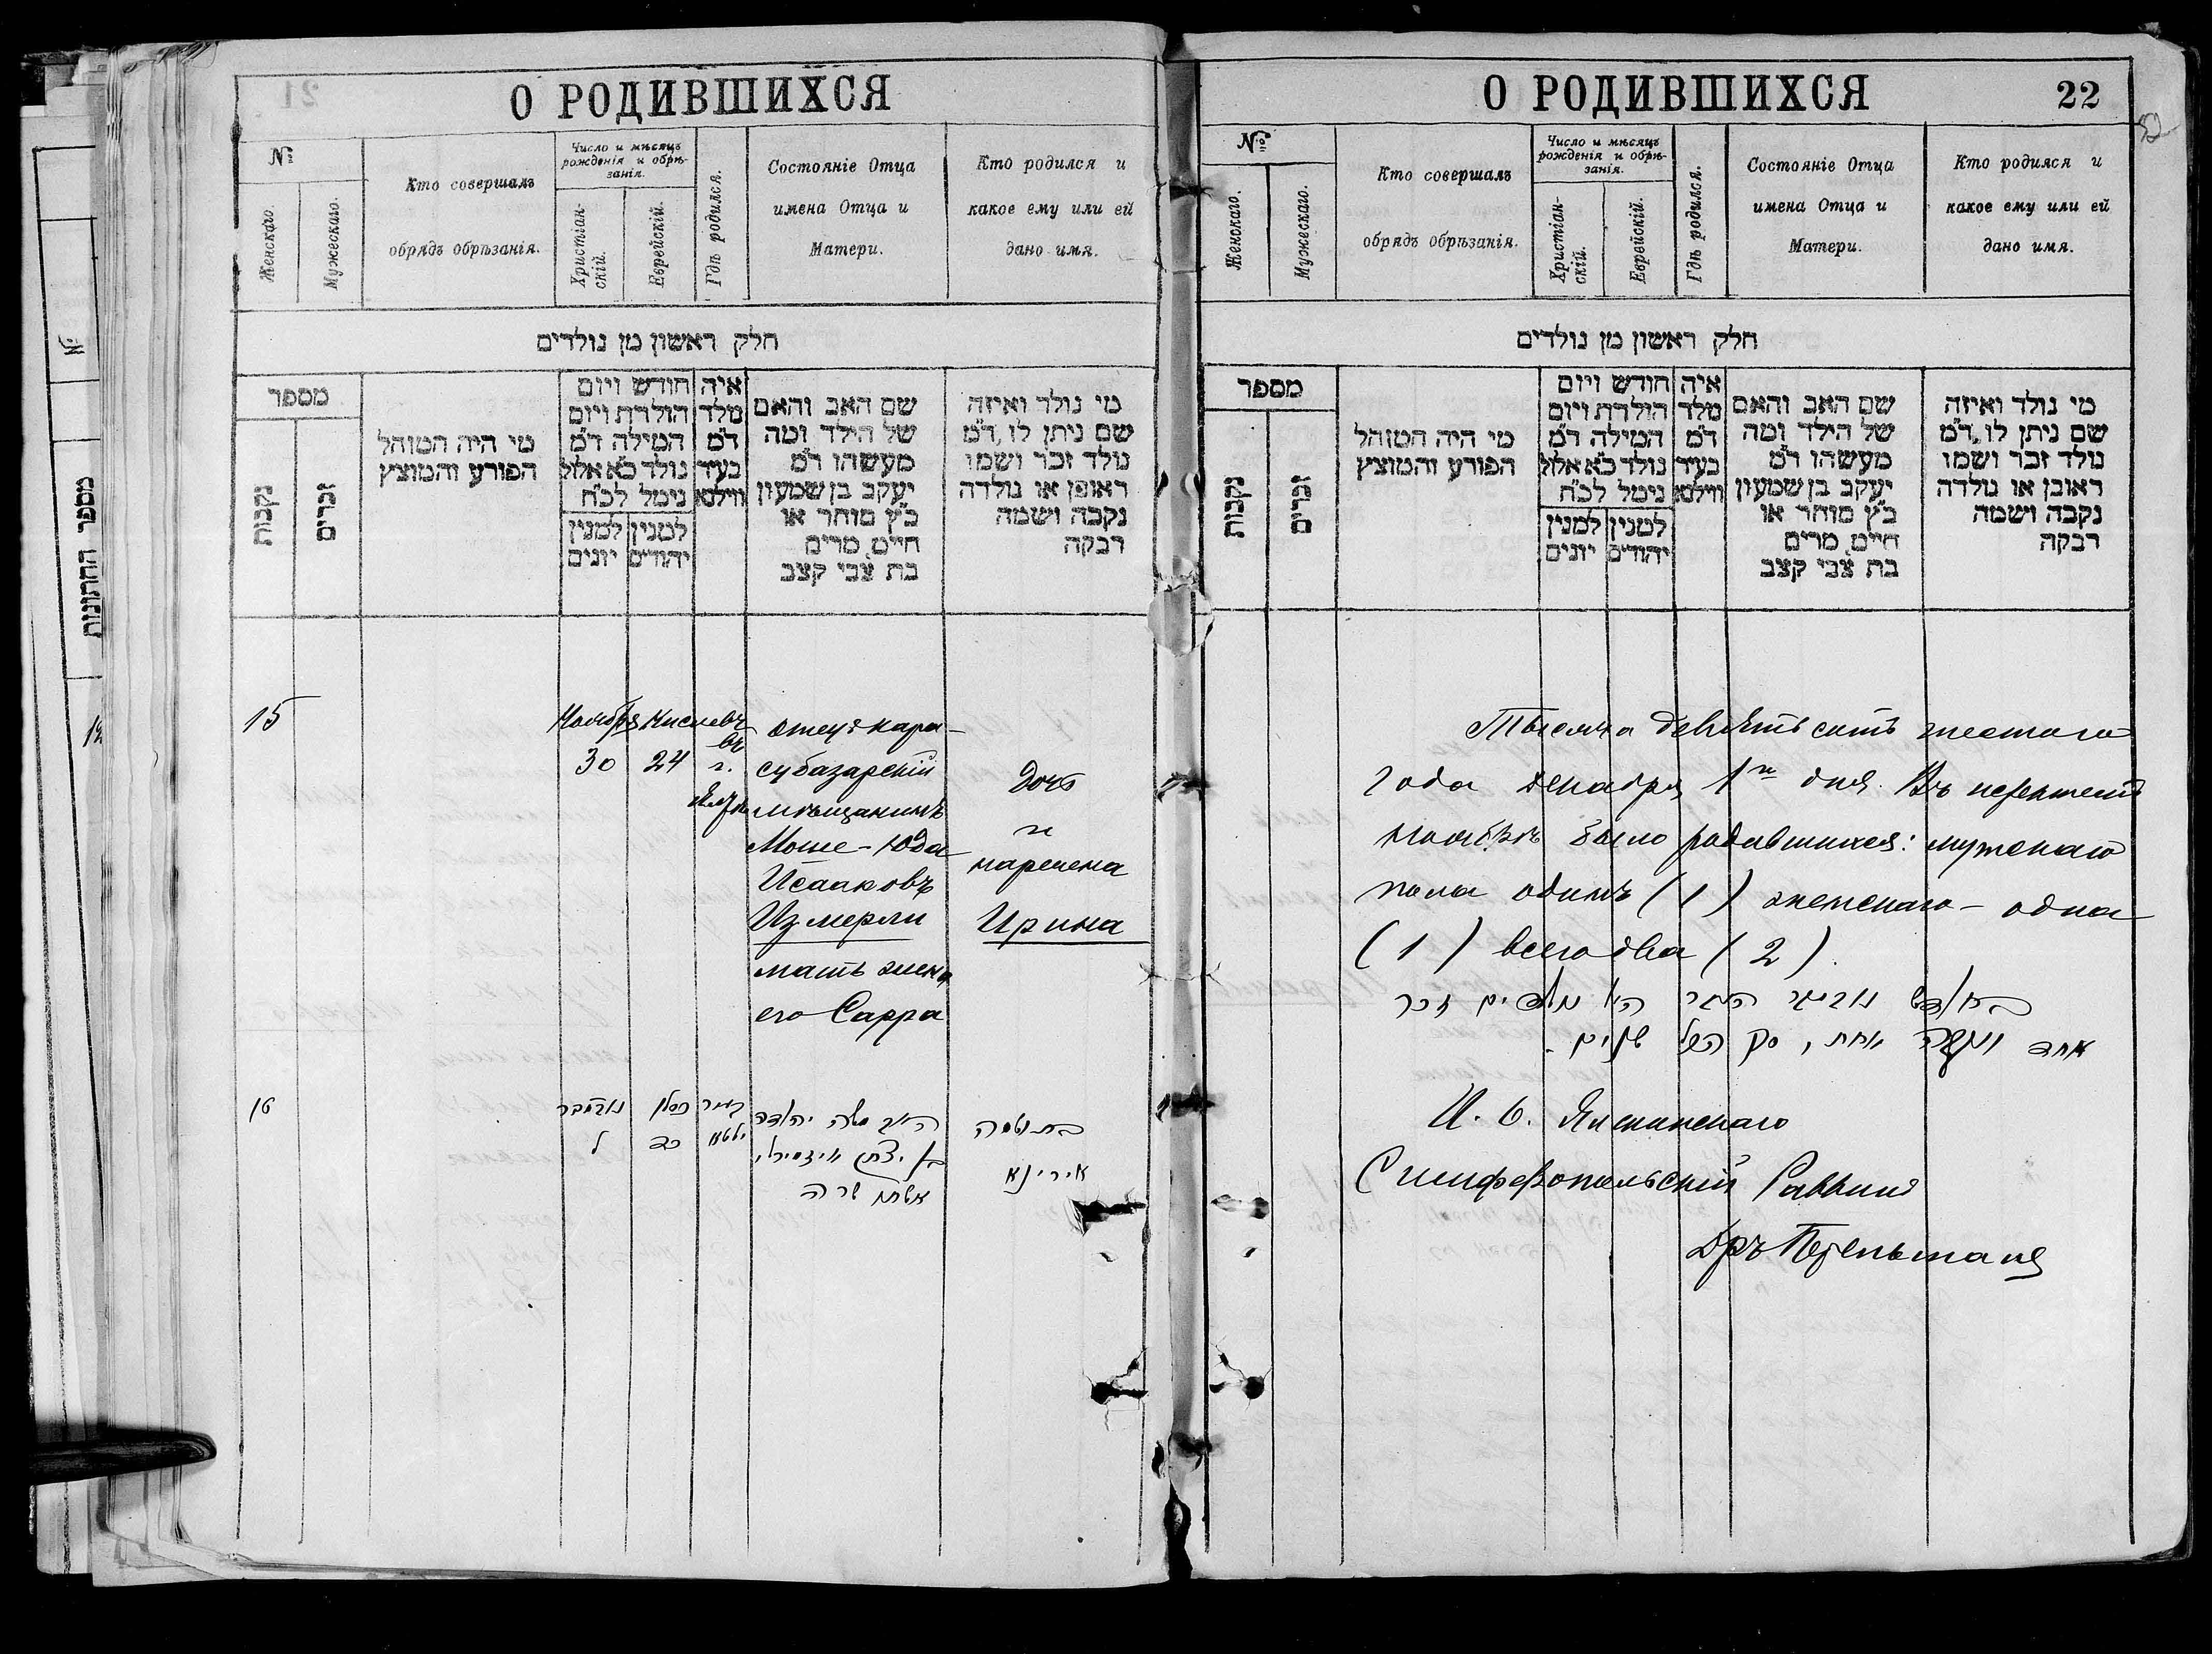 О РОДИВШИХСЯ
21
№
Женскаго.
Мужескаго.
Кто совершалъ
обрядъ обрѣзанія.
Число и мѣсяцъ
рожденія и обрѣ-
занія.
Христіан-
скій.
Еврейскій.
Гдѣ родился.
Состояніе Отца
имена Отца и
Матери.
Кто родился и
какое ему или ей
дано имя.
חלק ראשון מן נולדים
מספר
נקבות
זכרים
מי היה המוהל
הפורע והמוצץ
חודש ויום
הולדת ויום
המילה ד״מ
נולד כ״א אלול
נימל לכ״ח
למנין
יהודים
למנין
יונים
איה
מלד
ד״מ
בעיר
ווילנא
שם האב והאם
של הילד ומה
מעשהו ד״מ
יעקב בן שמעון
כ״ץ סוחר או
חיים, מרים
בת צבי קצב
מי נולד ואיזה
שם ניתן לו, ד״מ
נולד זכר ושמו
ראובן או נולדה
נקבה ושמה
רבקה
15
Ноября
30
Кислевъ
24
въ
г.
отецъ кара-
субазарскій
мѣщанинъ
Моше-Юда
Исааковъ
Измерли
мать жена
его Сарра
Дочь
и
наречена
Ирина
16
נאוומבר
ל
כסלו
כד
בעיר
האב משה יהודה
אשתו שרה
אירינא
О РОДИВШИХСЯ
22
№
Женскаго.
Мужескаго.
Кто совершалъ
обрядъ обрѣзанія.
Число и мѣсяцъ
рожденія и обрѣ-
занія.
Христіан-
скій.
Еврейскій.
Гдѣ родился.
Состояніе Отца
имена Отца и
Матери.
Кто родился и
какое ему или ей
дано имя.
חלק ראשון מן נולדים
מספר
נקבות
זכרים
מי היה המוהל
הפורע והמוצץ
חודש ויום
הולדת ויום
המילה ד״מ
נולד כ״א אלול
נימל לכ״ח
למנין
יהודים
למנין
יונים
איה
מלד
ד״מ
בעיר
ווילנא
שם האב והאם
של הילד ומה
מעשהו ד״מ
יעקב בן שמעון
כ״ץ סוחר או
חיים, מרים
בת צבי קצב
מי נולד ואיזה
שם ניתן לו, ד״מ
נולד זכר ושמו
ראובן או נולדה
נקבה ושמה
רבקה
Тысяча девятьсотъ шестого
года декабря 1го дня. Въ истекшемъ
ноябрѣ было родившихся: мужскаго
пола одинъ (1) женскаго - одна
(1) всего два (2).
אחד ונקבה אחת, סך הכל שנים.
И. о. Ялтинскаго
Симферопольскій Раввинъ